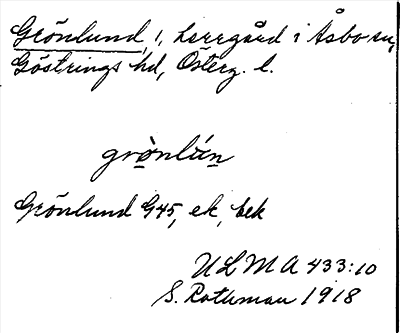 Grönlund, 1, herrgård i Åsbo sn,
Göstrings hd, Österg. l.
grònlún
Grönlund G45, ek, bek
ULMA 433:10
S. Rothman 1918